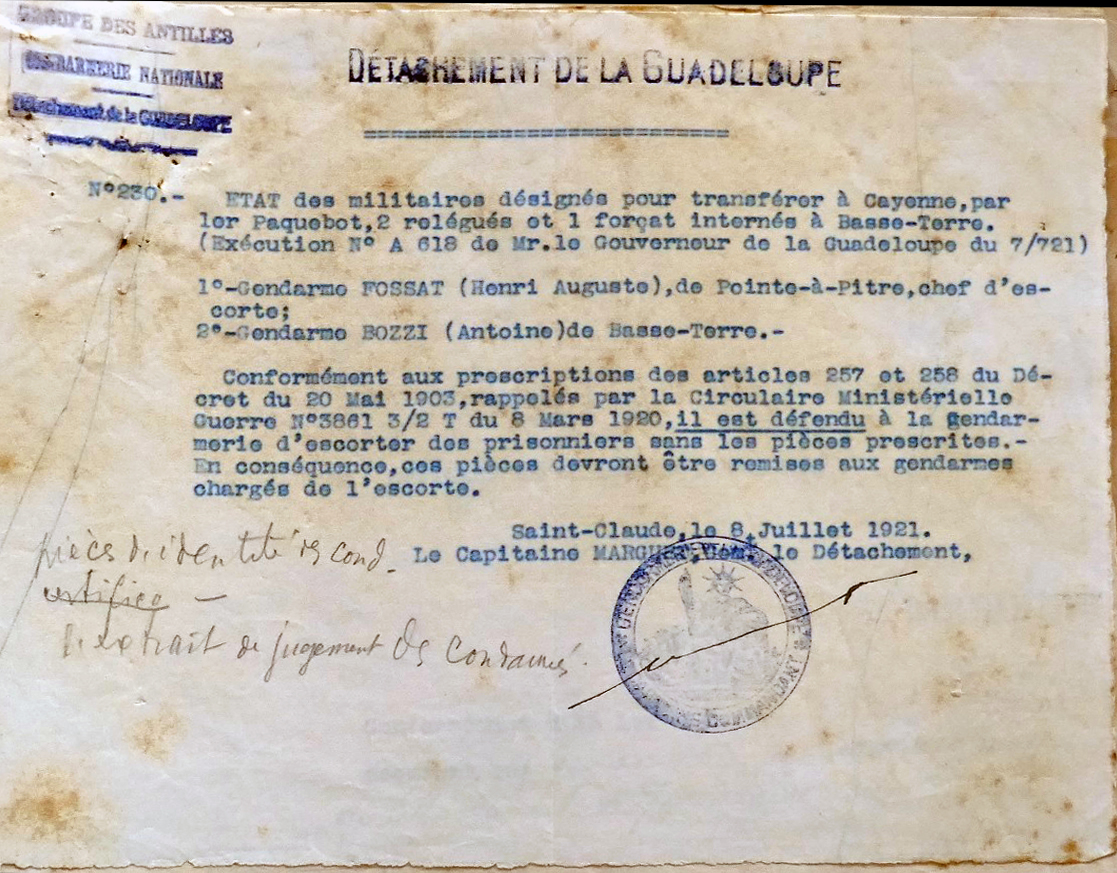 GROUPE DES ANTILLES
GENDARMERIE NATIONALE
Détachement de la GUADELOUPE
DÉTACHEMENT DE LA GUADELOUPE
N°230.- ETAT des militaires désignés pour transférer à Cayenne,par
1er Paquebot,2 relégués et 1 forçat internés à Basse-Terre.
(Exécution N° A 618 de Mr.le Gouverneur de la Guadeloupe du 7/721)
1°-Gendarme FOSSAT (Henri Auguste),de Pointe-à-Pitre,chef d'es-
corte;
2°-Gendarme BOZZI (Antoine)de Basse-Terre.-
Conformément aux prescriptions des articles 257 et 258 du Dé-
cret du 20 Mai 1903,rappelés par la Circulaire Ministérielle
Guerre N°3861 3/2 T du 8 Mars 1920,il est défendu à la gendar-
merie d'escorter des prisonniers sans les pièces prescrites.-
En conséquence,ces pièces devront être remises aux gendarmes
chargés de l'escorte.
Saint-Claude,le 8,Juillet 1921.
Le Capitaine MARGUET, le Détachement,
pièces d'identité des cond.
certifiée —
extrait de jugement des condamnés.
COMMANDANT